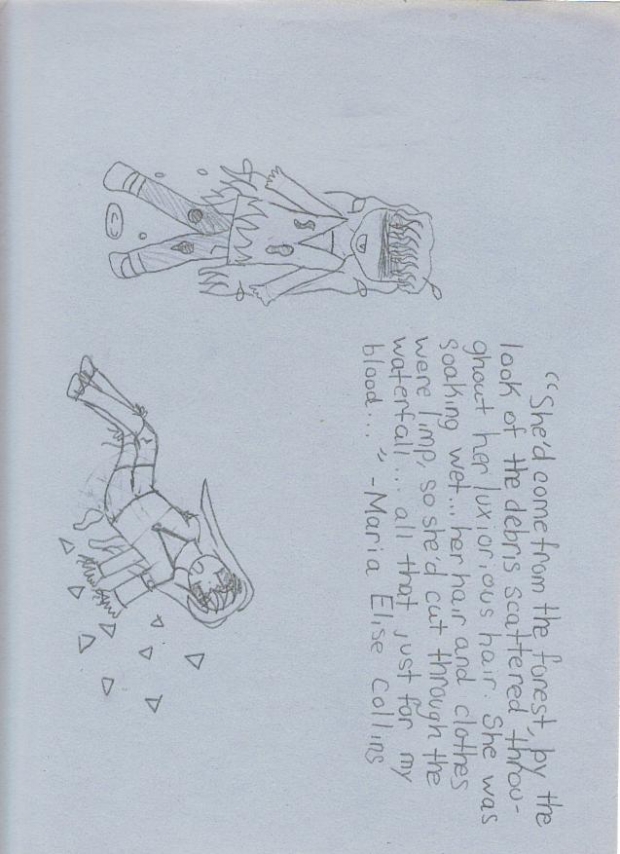 “She'd come from the forest, by the
look of the debris scattered throu-
ghout her luxiorious hair. She was
soaking wet... her hair and clothes
were limp, so she'd cut through the
waterfall... all that just for my
blood...” -Maria Elise Collins